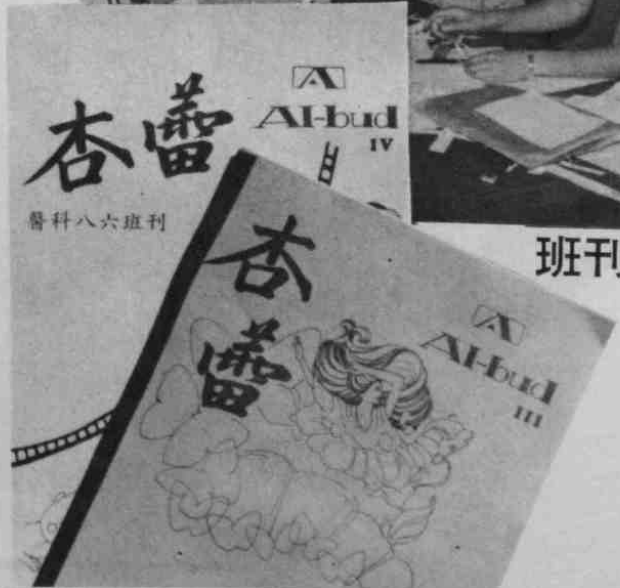 杏蕾
A
AI-bud
IV
醫科八六班刊
班刊
杏
蕾
A
AI-bud
III